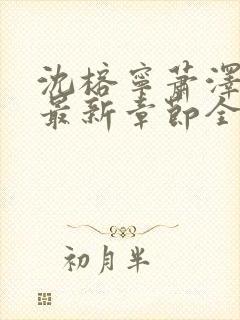 沈榕寧蕭澤
最新章節全
初月半